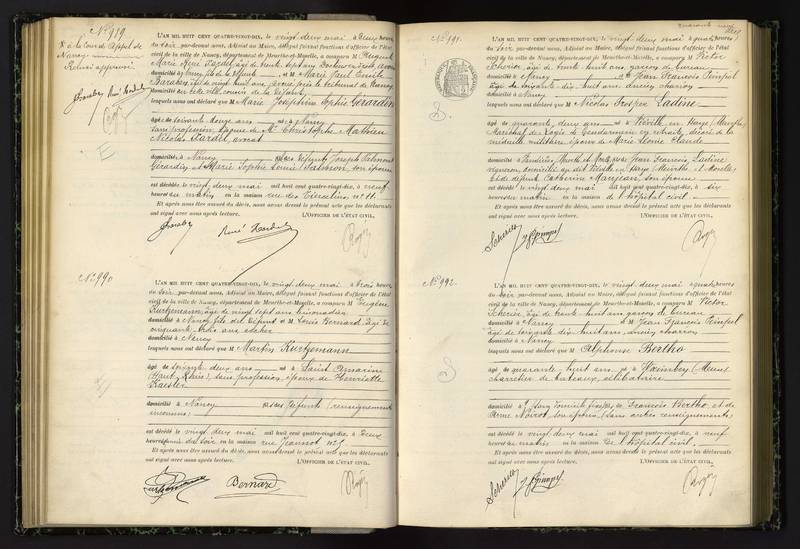 No 989
L'AN MIL HUIT CENT QUATRE-VINGT-DIX, le vingt deux mai à deux heures
du soir, par-devant nous, Adjoint au Maire, délégué faisant fonctions d'officier de l'état
civil de la ville de Nancy, département de Meurthe-et-Moselle, a comparu M
Marie René âgé de trente sept ans
domicilié à Nancy de la défunte, et M Marie Paul Emile
âgé de vingt huit ans, avocat près le tribunal de Nancy
domicilié en cette ville, cousin de la défunte
lesquels nous ont déclaré que M Marie Joséphine Sophie Gérardin
âgée de soixante ans née à Nancy
sans profession, épouse de Mr Christophe Mathieu
Nicolas avocat
domiciliée à Nancy défunts Joseph
Gérardin et Marie Sophie Louise son épouse
est décédée le vingt deux mai mil huit cent quatre-vingt-dix, à neuf
heures du matin en la maison rue des Tiercelins no 11.
Et après nous être assuré du décès, nous avons dressé le présent acte que les déclarants
ont signé avec nous après lecture. L'OFFICIER DE L'ÉTAT CIVIL,
à la Cour d'Appel de
Nancy
Renvoi approuvé
No 990
L'AN MIL HUIT CENT QUATRE-VINGT-DIX, le vingt deux mai à trois heures
du soir, par-devant nous, Adjoint au Maire, délégué faisant fonctions d'officier de l'état
civil de la ville de Nancy, département de Meurthe-et-Moselle, a comparu M Eugène
Kurtzemann, âgé de vingt sept ans limonadier
domicilié à Nancy, fils du défunt et M Louis Bernard âgé de
cinquante trois ans
domicilié à Nancy
lesquels nous ont déclaré que M Martin Kurtzemann
âgé de soixante deux ans né à Saint Amarin
(Haut Rhin), sans profession, époux de Henriette
Kaesler
domicilié à Nancy défunts (renseignements
inconnus)
est décédé le vingt deux mai mil huit cent quatre-vingt-dix, à deux
heures du soir en la maison rue Jeannot no 25.
Et après nous être assuré du décès, nous avons dressé le présent acte que les déclarants
ont signé avec nous après lecture. L'OFFICIER DE L'ÉTAT CIVIL,
Bernard
No 991.
L'AN MIL HUIT CENT QUATRE-VINGT-DIX, le vingt deux mai à quatre heures
du soir par-devant nous, Adjoint au Maire, délégué faisant fonctions d'officier de l'état
civil de la ville de Nancy, département de Meurthe-et-Moselle, a comparu M Victor
âgé de trente huit ans, garçon de bureau
domicilié à Nancy et M Jean François
âgé de soixante dix huit ans, ancien charron
domicilié à Nancy
lesquels nous ont déclaré que M Nicolas Prosper Ladine
âgé de quarante deux ans né à
Maréchal des Logis de Gendarmerie en retraite, décoré de la
médaille militaire époux de Marie Léonie Claude
domicilié à Jean François Ladine
vigneron, domicilié (Meurthe et Moselle)
et de défunte Catherine son épouse
est décédé le vingt deux mai mil huit cent quatre-vingt-dix, à six
heures du matin en la maison de l'hôpital civil
Et après nous être assuré du décès, nous avons dressé le présent acte que les déclarants
ont signé avec nous après lecture. L'OFFICIER DE L'ÉTAT CIVIL,
No 992.
L'AN MIL HUIT CENT QUATRE-VINGT-DIX, le vingt deux mai à quatre heures
du soir par-devant nous, Adjoint au Maire, délégué faisant fonctions d'officier de l'état
civil de la ville de Nancy, département de Meurthe-et-Moselle, a comparu M Victor
âgé de trente huit ans garçon de bureau
domicilié à Nancy et M Jean François
âgé de soixante dix huit ans, ancien charron
domicilié à Nancy
lesquels nous ont déclaré que M Alphonse Bertho
âgé de quarante huit ans né à (Meuse)
charretier de bateaux, célibataire
domicilié à (sans domicile fixe) fils de François Bertho et de
Anne Noirot, son épouse (sans autres renseignements)
est décédé le vingt deux mai mil huit cent quatre-vingt-dix, à neuf
heures du matin en la maison de l'hôpital civil.
Et après nous être assuré du décès, nous avons dressé le présent acte que les déclarants
ont signé avec nous après lecture. L'OFFICIER DE L'ÉTAT CIVIL,